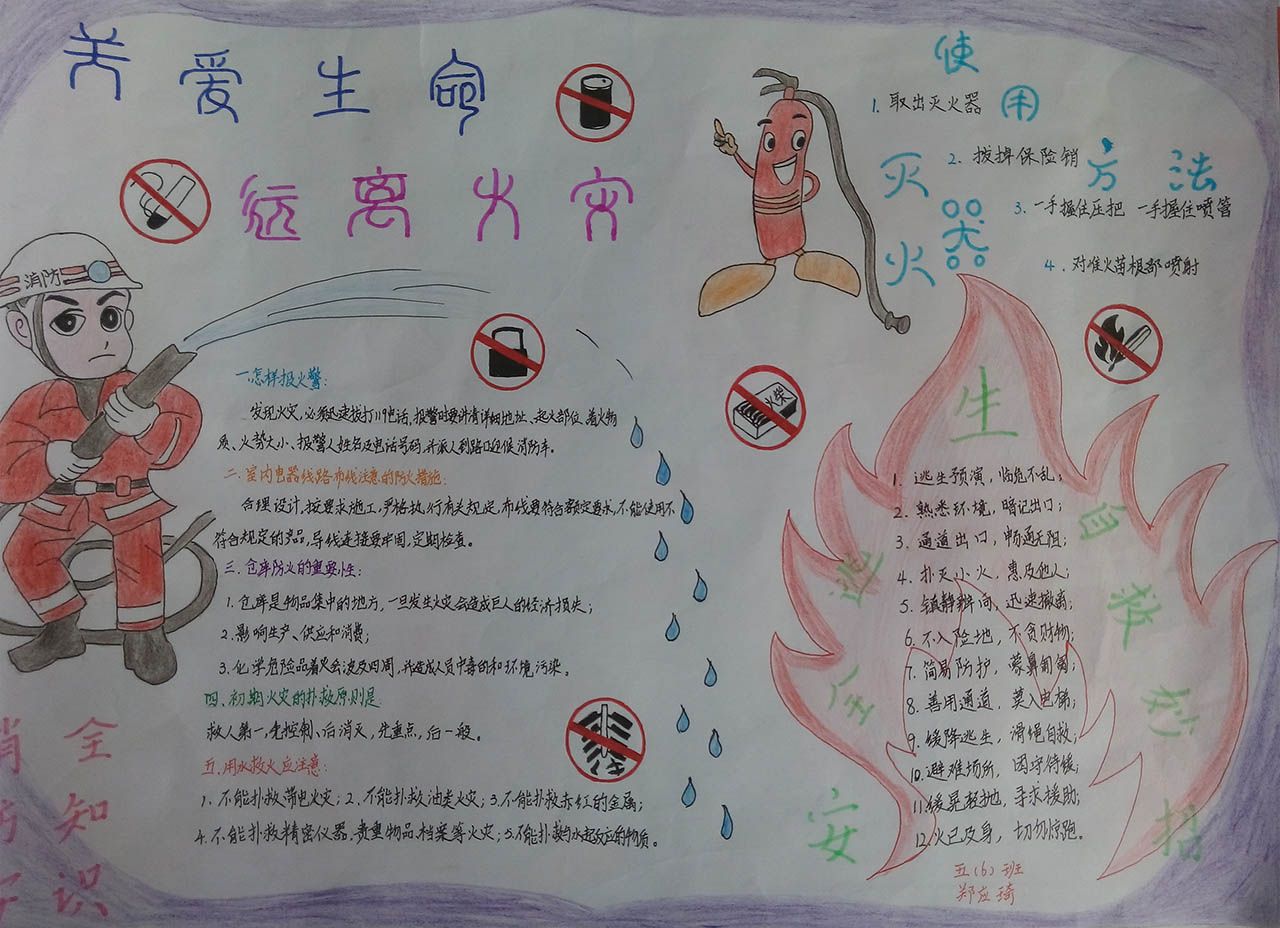 关爱生命
远离火灾
消防
一怎样报火警:
发现火灾,必须迅速拨打119电话,报警时要讲清详细地址、起火部位、着火物
质、火势大小、报警人姓名及电话号码,并派人到路口迎候消防车。
二.室内电器线路布线注意的防火措施:
合理设计,按要求施工,严格执行有关规定,布线要符合额定要求,不能使用不
符合规定的产品,导线连接要牢固,定期检查。
三.仓库防火的重要性:
1.仓库是物品集中的地方,一旦发生火灾会造成巨人的经济损失;
2.影响生产、供应和消费;
3.化学危险品着火会波及四周,并造成人员中毒的和环境污染。
四.初期火灾的扑救原则是
救人第一,先控制、后消灭,先重点,后一般。
五.用水救火应注意:
1.不能扑救带电火灾;2.不能扑救油类火灾;3.不能扑救赤红的金属;
4.不能扑救精密仪器、贵重物品、档案等火灾;5.不能扑救与水起反应的物质。
全知识
使用灭火器方法
1.取出灭火器
2.拔掉保险销
3.一手握住压把 一手握住喷管
4.对准火苗根部喷射
火柴
安全逃生自救妙招
1.逃生预演,临危不乱;
2.熟悉环境,暗记出口;
3.通道出口,畅通无阻;
4.扑灭小火,惠及他人;
5.镇静辨向,迅速撤离;
6.不入险地,不贪财物;
7.简易防护,蒙鼻匍匐;
8.善用通道,莫入电梯;
9.缓降逃生,滑绳自救;
10.避难场所,固守待援;
11.缓晃轻抛,寻求援助;
12.火已及身,切切惊跑。
五(6)班
郑应琦